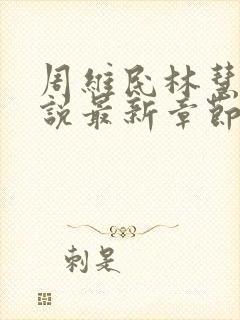 周維民林慧
說最新章節
刺是